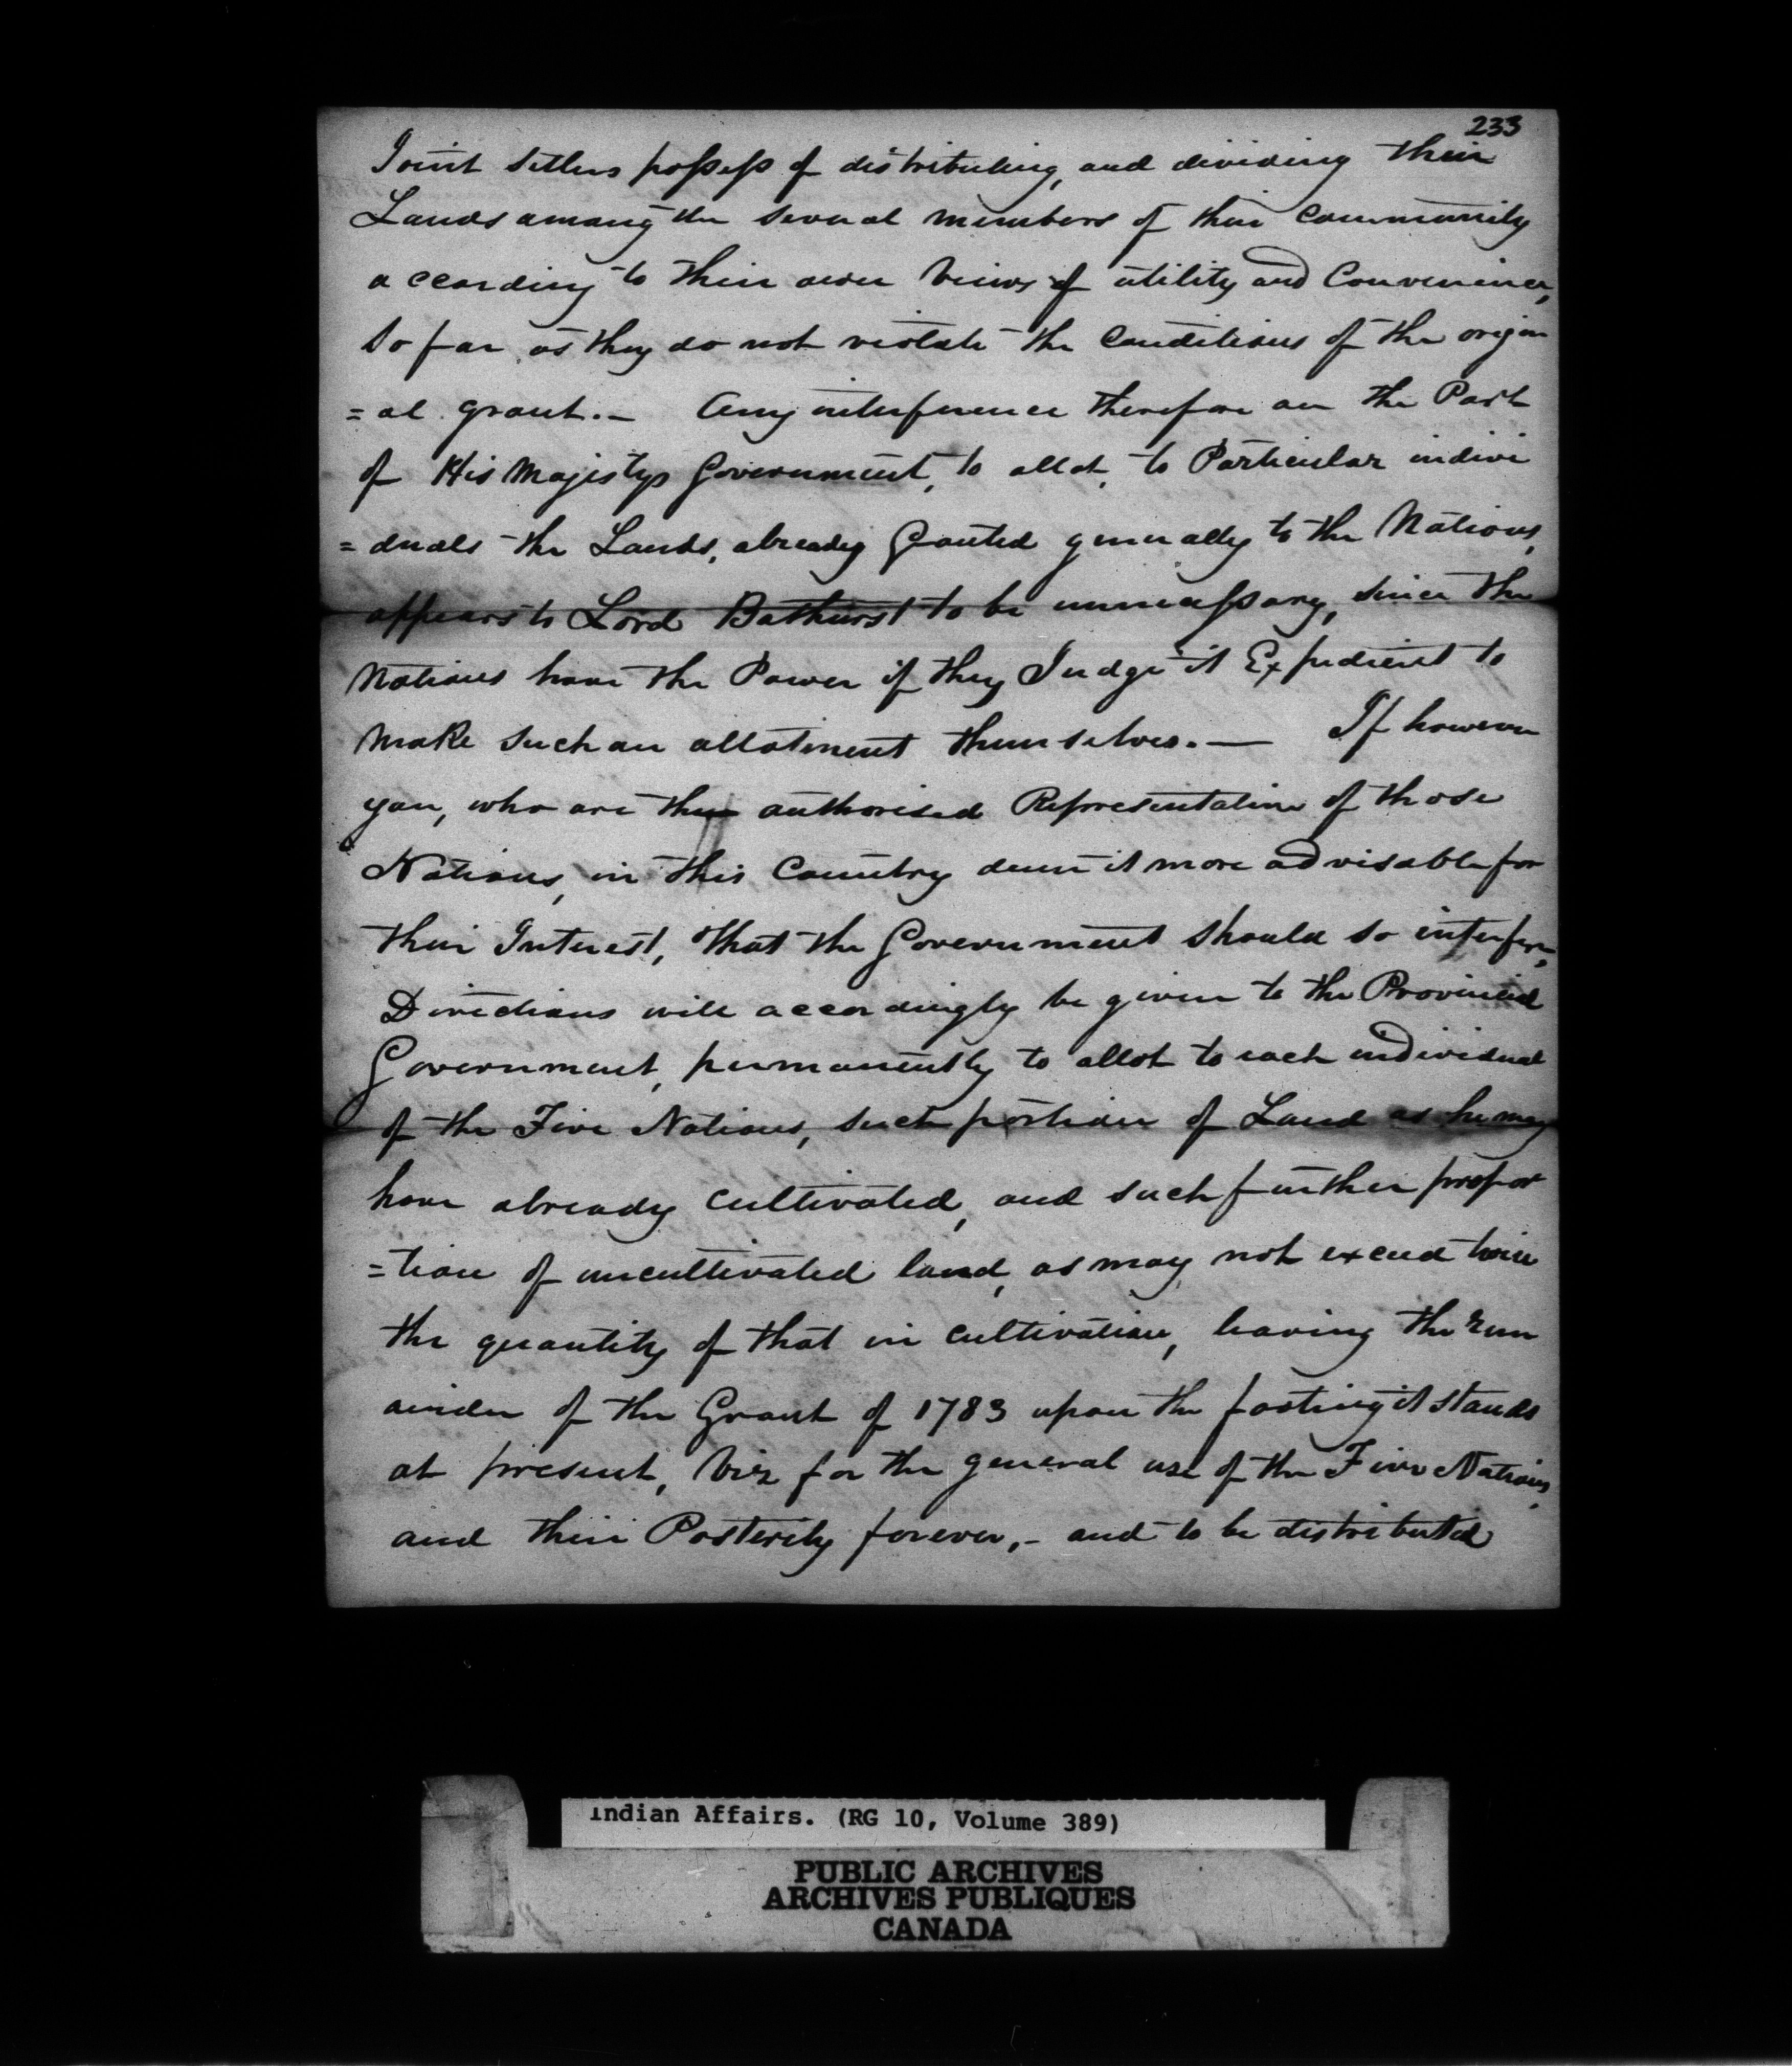 233
Joint Setlers possess of distributing, and dividing their
Lands among the several members of their Community
according to their own Views of utility and Convenience,
So far as they do not violate the Conditions of the origin
=al grant.— Any interference therefore on the Part
of His Majestys Government, to allot, to Particular indivi
=duals the Lands, already Granted generally to the Nations,
appears to Lord Bathurst to be unnecessary, since the
Nations have the Power if they Judge it Expedient to
Make such an allotment themselves.— If however
you, who are the authorised Representative of those
Nations, in this Country deem it more advisable for
their Interest, that the Government should so interfere,
Directions will accordingly be given to the Provincial
Government, permanently to allot to each individual
of the Five Nations, such portion of Land as he may
have already cultivated, and such further propor
=tion of uncultivated land, as may not exceed twice
the quantity of that in cultivation, leaving the rem
ainder of the Grant of 1783 upon the footing it stands
at present, Viz for the general use of the Five Nations,
and their Posterity forever,- and to be distributed
Indian Affairs. (RG 10, Volume 389)
PUBLIC ARCHIVES
ARCHIVES PUBLIQUES
CANADA